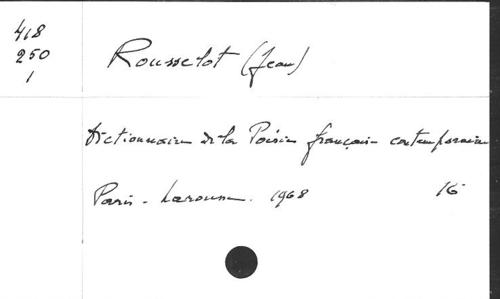 418
250
1
Rousselot (Jean)
Dictionnaire de la Poésie française contemporaine
Paris - Larousse. 1968 16